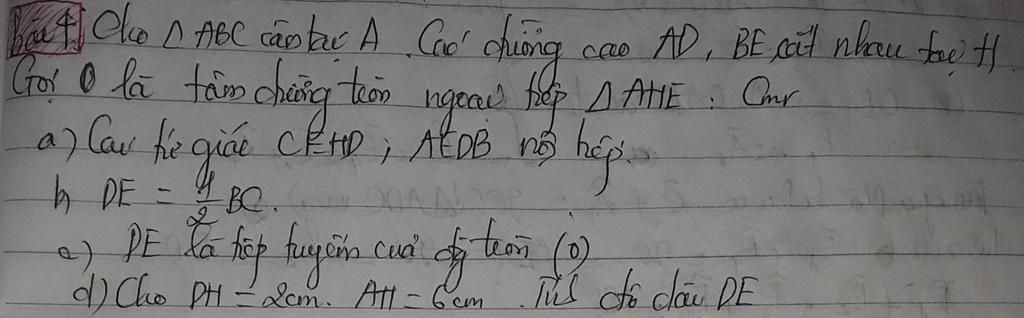 Bài 4 Cho Δ ABC cân tại A. Các đường cao AD, BE, cắt nhau tại H.
Gọi O là tâm đường tròn ngoại tiếp Δ AHE. Cmr
a) Các tứ giác CEHD; AEDB nội tiếp.
b) DE = 1/2 BC.
c) DE là tiếp tuyến của đg tròn (O)
d) Cho DH = 2cm. AH = 6cm. Tính độ dài DE